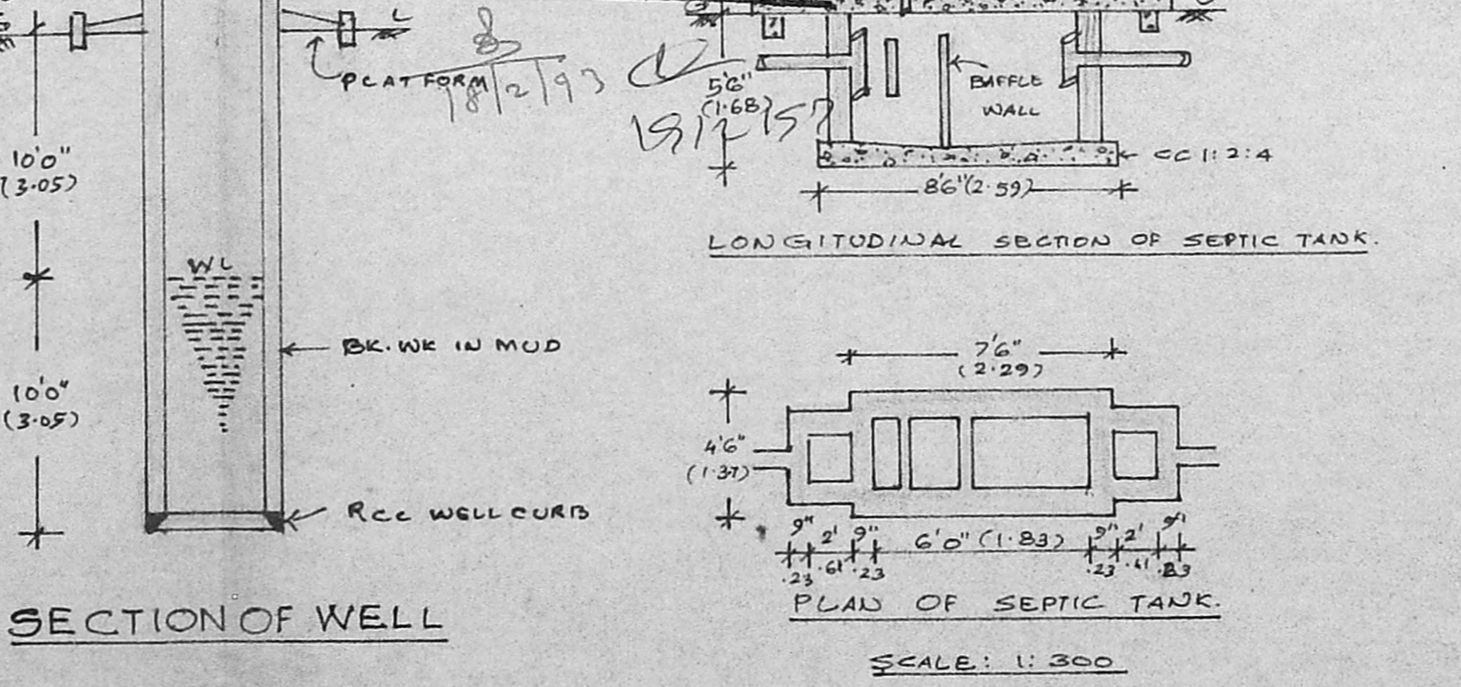 L
PLATFORM
18/2/93
10'0"
(3.05)
WL
BK. WK IN MUD
10'0"
(3.05)
RCC WELL CURB
SECTION OF WELL
5'6"
(1.68)
BAFFLE
WALL
CC 1:2:4
8'6"(2.59)
LONGITUDINAL SECTION OF SEPTIC TANK.
7'6"
(2.29)
4'6"
(1.37)
9" 2' 9" 6'0" (1.83) 9" 2' 9"
.23 .61 .23 .23 .61 .23
PLAN OF SEPTIC TANK.
SCALE: 1:300